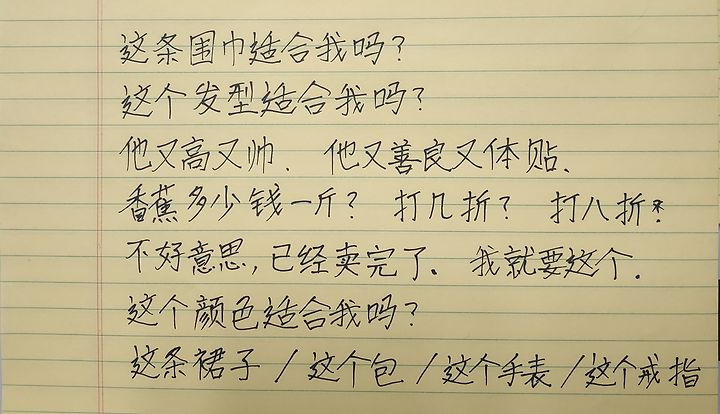 这条围巾适合我吗？
这个发型适合我吗？
他又高又帅. 他又善良又体贴.
香蕉多少钱一斤？ 打几折？ 打八折.
不好意思,已经卖完了. 我就要这个.
这个颜色适合我吗？
这条裙子/这个包/这个手表/这个戒指